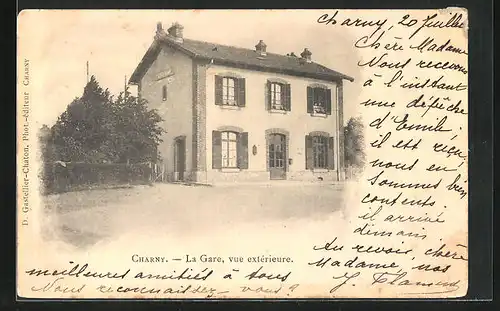 Charny, 20 Juillet
Chère Madame
Nous recevons
à l'instant
une dépêche
d'Emile,
il est reçu,
nous en
sommes bien
contents.
il arrive
demain
Au revoir, chère
Madame, nos
meilleures amitiés à tous
J. Flamend
Nous reconnaissez vous ?
CHARNY. — La Gare, vue extérieure.
D. Gastellier-Chaton, Phot.-Éditeur CHARNY